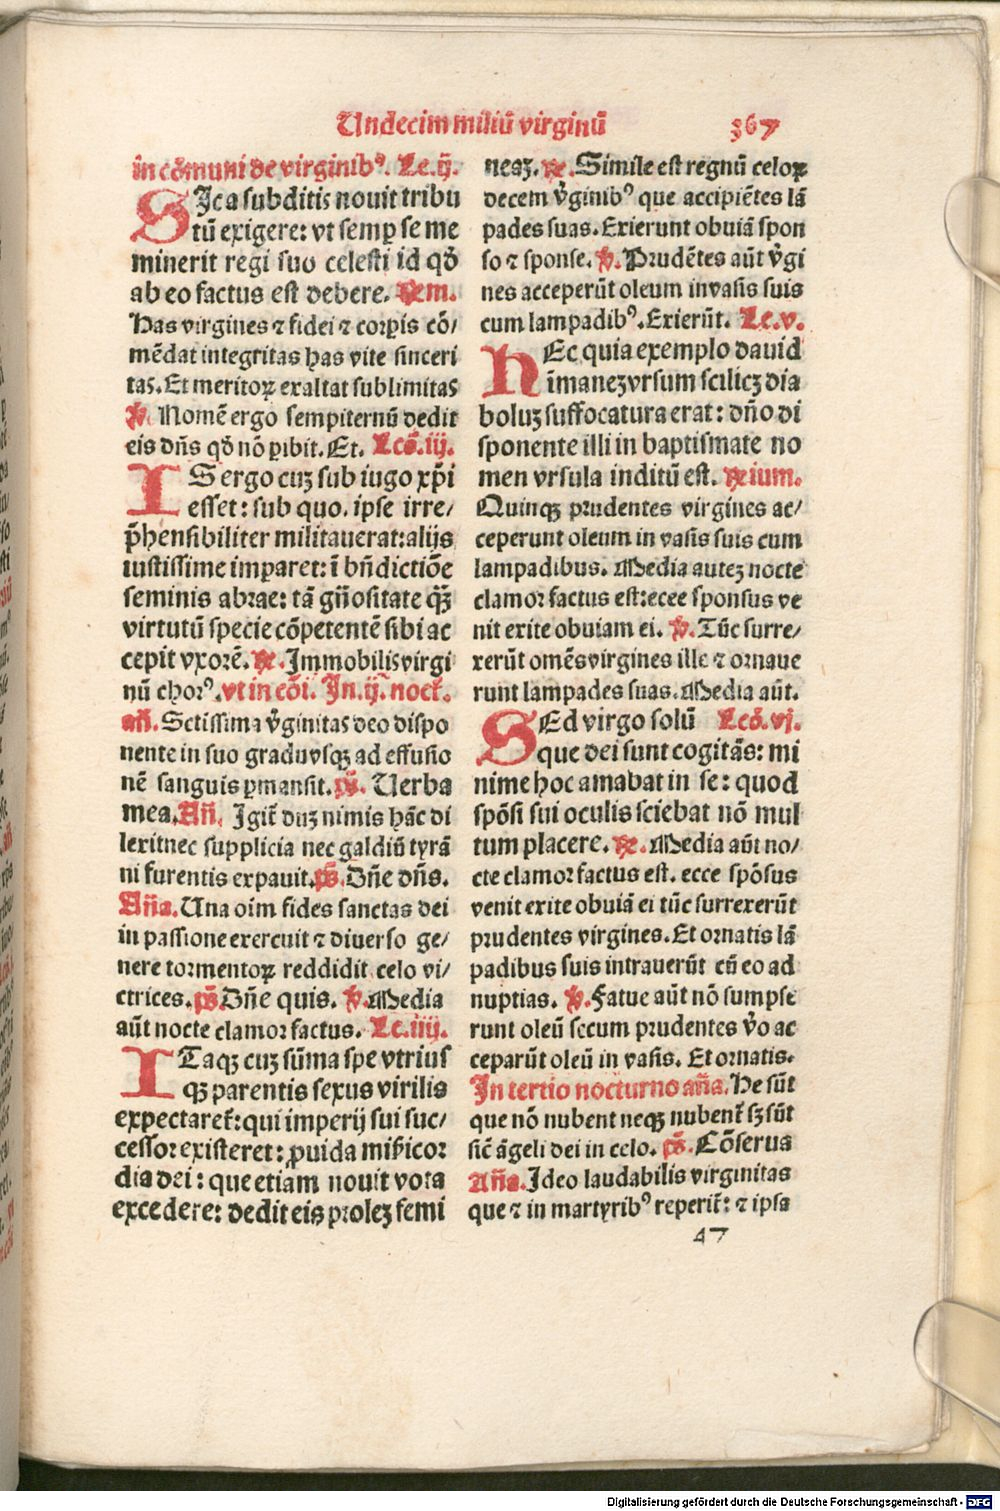 Undecim miliū virginū 367
in cōmuni de virginibꝰ. Lc.ij.
SIc a subditis nouit tribu
tū exigere: vt semꝑ se me
minerit regi suo celesti id qḋ
ab eo factus est debere. ℞em.
Has virgines ⁊ fidei ⁊ corꝑis cō/
mēdat integritas has vite sinceri
tas. Et meritoꝝ exaltat sublimitas
℣. Nomē ergo sempiternū dedit
eis dn̄s qḋ nō ꝑibit. Et. Lcō.iij.
IS ergo cuꝫ sub iugo xp̄i
esset: sub quo. ipse irre/
p̄hensibiliter militauerat: alijs
iustissime imparet: ī bn̄dictiōe
seminis abrae: tā gn̄ositate q̄ꝫ
virtutū specie cōpetentē sibi ac
cepit vxorē. ℞. Immobilis virgi
nū chorꝰ. vt in cōi. In.ij. noct̄.
an̄. Sctissima v̄ginitas deo dispo
nente in suo gradu vsqꝫ ad effusio
nē sanguis ꝑmansit. pš. Uerba
mea. An̄. Igit̄ duꝫ nimis hāc di
lexit nec supplicia nec galdiū tyrā
ni furentis expauit. pš. Dn̄e dn̄s.
An̄a. Una oim fides sanctas dei
in passione exercuit ⁊ diuerso ge/
nere tormentoꝝ reddidit celo vi/
ctrices. pš. Dn̄e quis. ℣. Media
aūt nocte clamor factus. Lc.iiij.
ITaqꝫ cuꝫ sūma spe vtrius
qꝫ parentis sexus virilis
expectaret̄: qui imperij sui suc/
cessor existeret: ꝓuida mīs̄icor
dia dei: que etiam nouit vota
excedere: dedit eis prolez femi
neaꝫ. ℞. Simile est regnū celoꝝ
decem v̄ginibꝰ que accipiētes lā
pades suas. Exierunt obuiā spon
so ⁊ sponse. ℣. Prudētes aūt v̄gi
nes acceperūt oleum in vasis suis
cum lampadibꝰ. Exierūt. Lc.v.
HEc quia exemplo dauid
īmanez vrsum scilicꝫ dia
boluꝫ suffocatura erat: dn̄o di
sponente illi in baptismate no
men vrsula inditū est. ℞ium.
Quinqꝫ prudentes virgines ac/
ceperunt oleum in vasis suis cum
lampadibus. Media autez nocte
clamor factus est: ecce sponsus ve
nit exite obuiam ei. ℣. Tūc surre/
xerūt omēs virgines ille ⁊ ornaue
runt lampades suas. Media aūt.
SEd virgo solū Lcō.vj.
que dei sunt cogitās: mi
nime hoc amabat in se: quod
spōsi sui oculis sciebat nō mul
tum placere. ℞. Media aūt no/
cte clamor factus est. ecce spōsus
venit exite obuiā ei tūc surrexerūt
prudentes virgines. Et ornatis lā
padibus suis intrauerūt cū eo ad
nuptias. ℣. Fatue aūt nō sumpse
runt oleū secum prudentes v̄o ac
ceparūt oleū in vasis. Et ornatis.
In tertio nocturno an̄a. He sūt
que nō nubent neqꝫ nubent̄ sꝫ sūt
sic̄ āgeli dei in celo. pš. Cōserua
An̄a. Ideo laudabilis virginitas
que ⁊ in martyribꝰ reperit̄: ⁊ ipsa
47
Digitalisierung gefördert durch die Deutsche Forschungsgemeinschaft - DFG